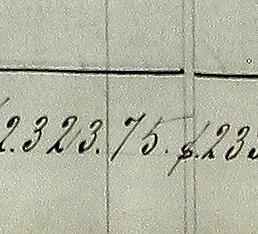 2.323.75. $.233